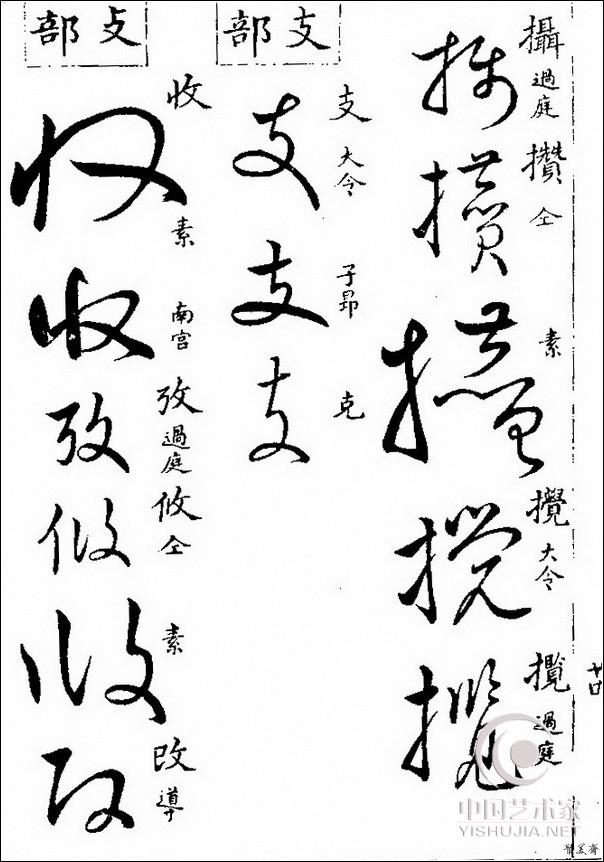 攝 過庭
攢 仝
素
攪 大令
攬 過庭
支部
支 大令
子昂
克
攴部
收 素
南宮
攷 過庭
攸 仝
素
改 導
中国艺术家
YISHUJIA.NET